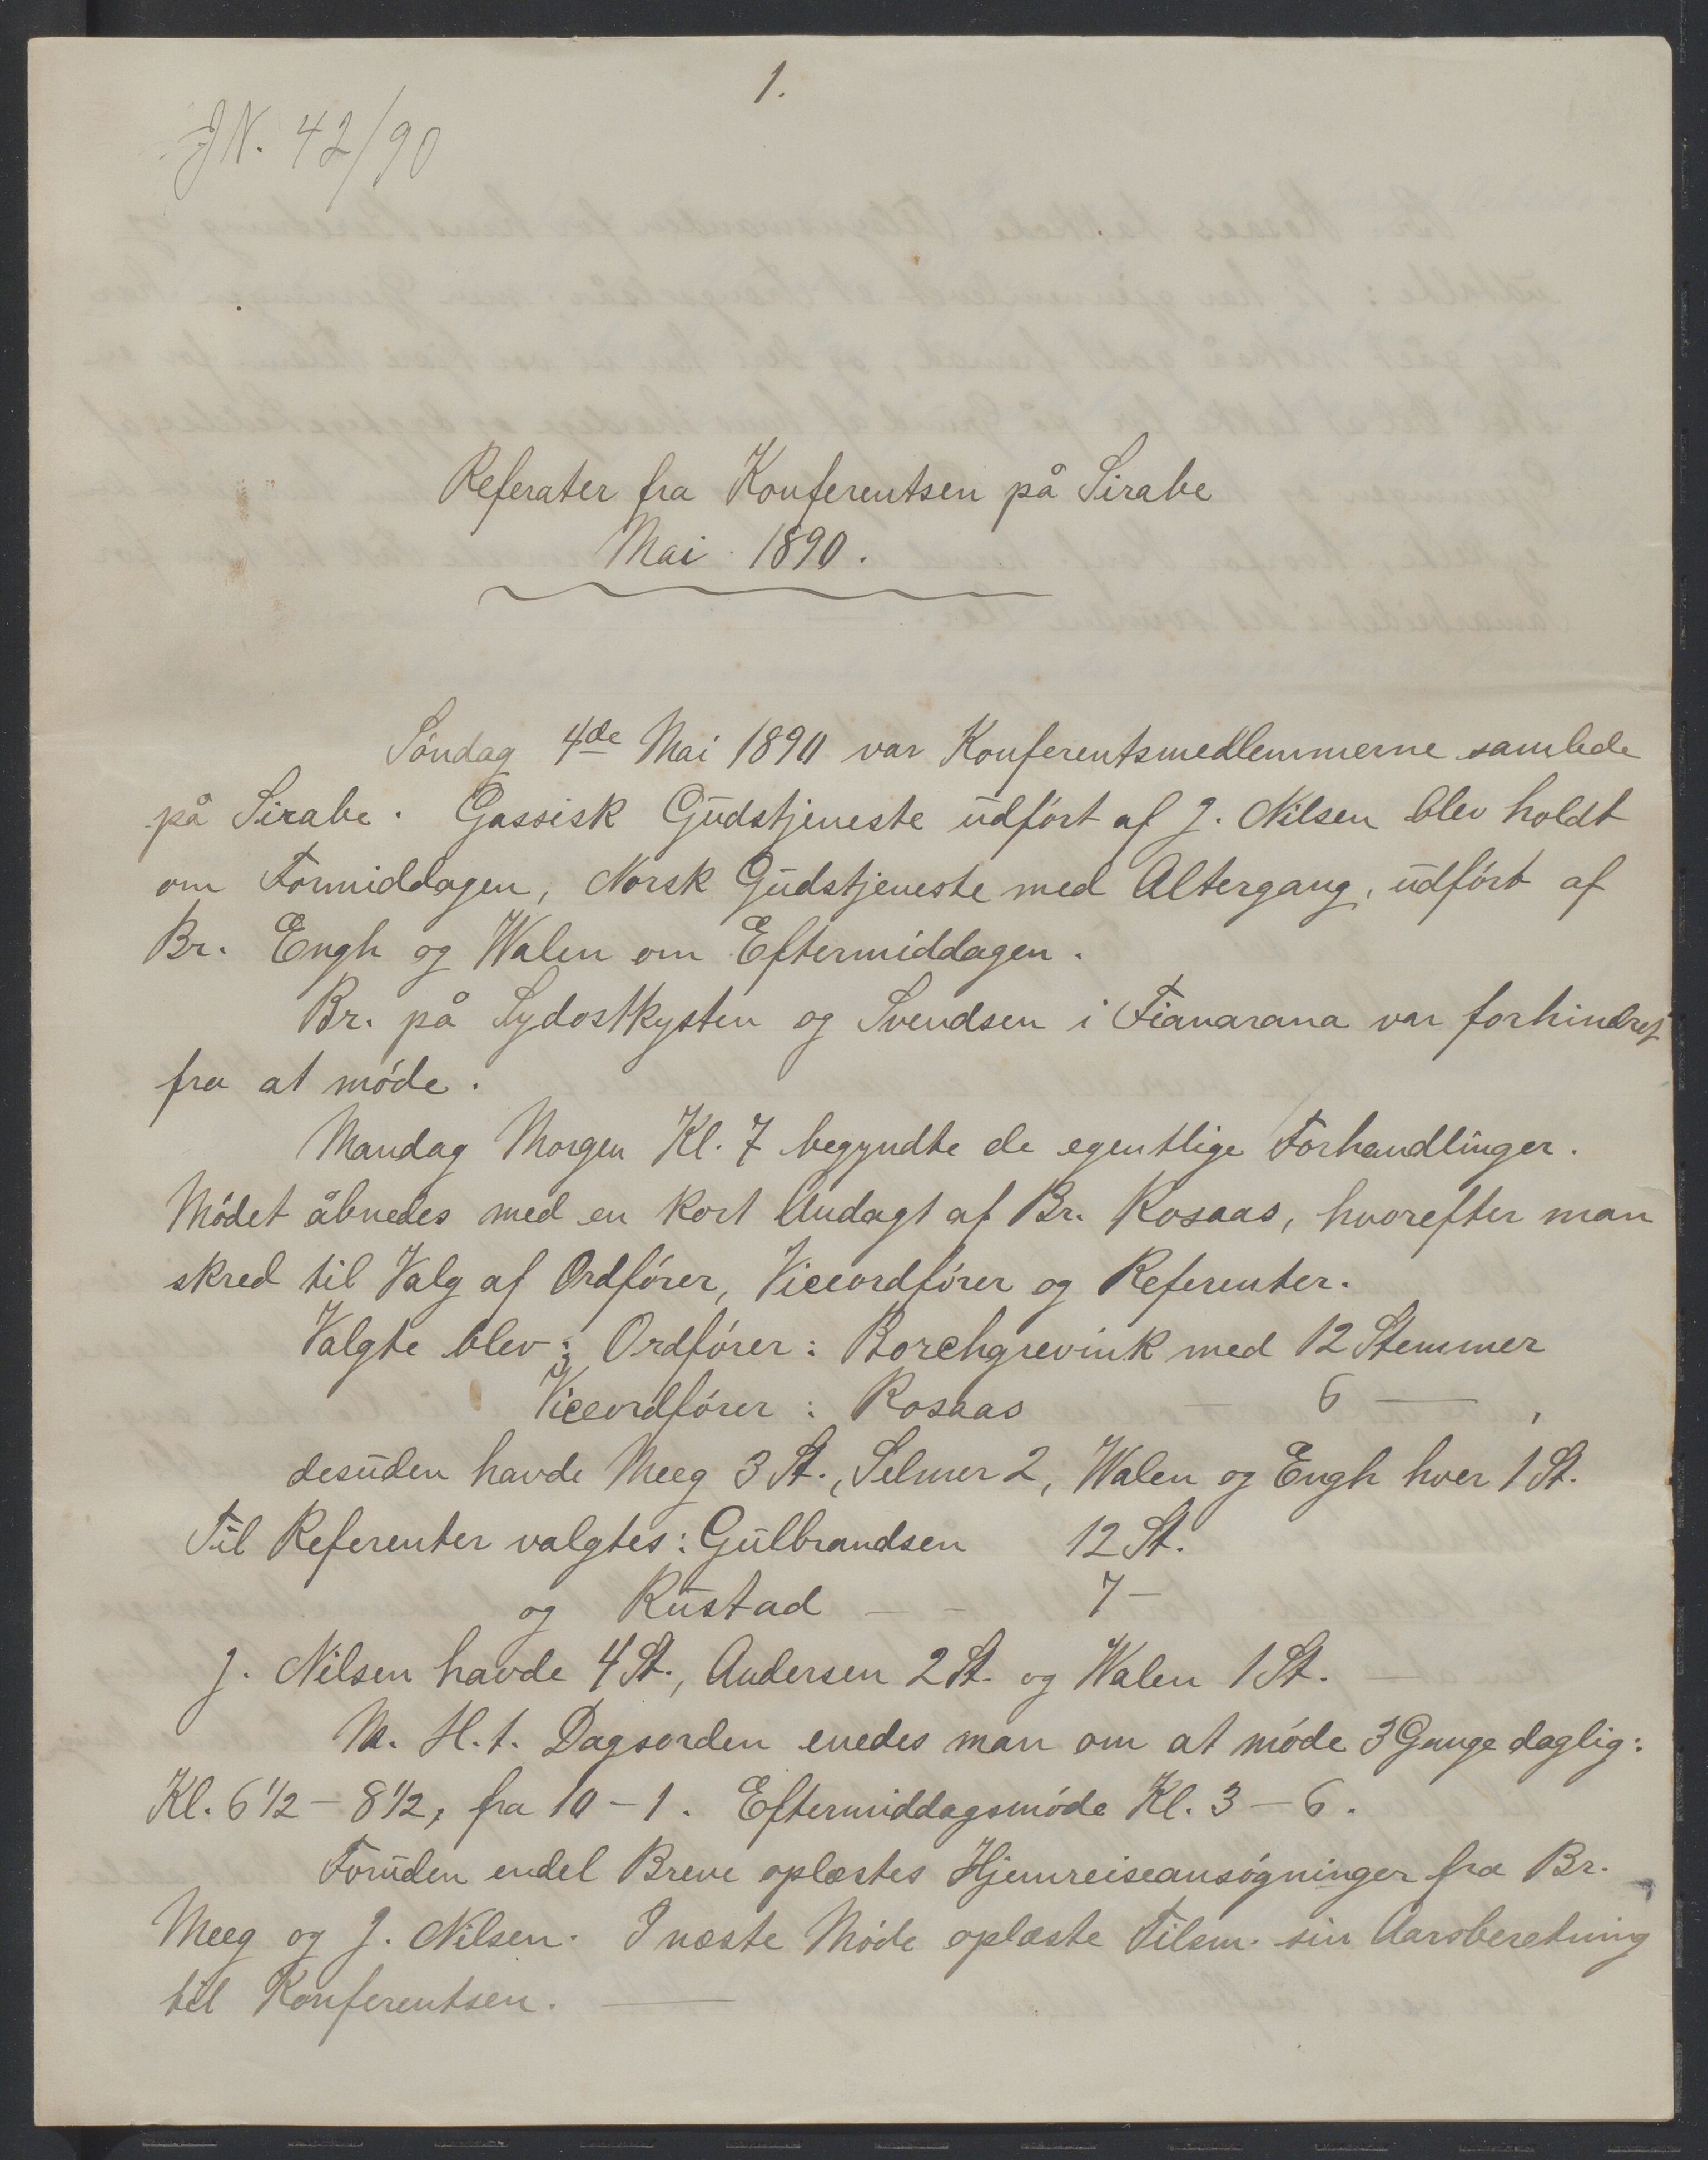 1.
JN. 42/90
Referater fra Konferentsen på Sirabe
Mai 1890.
Söndag 4de Mai 1890 var Konferentsmedlemmerne samlede
på Sirabe. Gassisk Gudstjeneste udfört af J. Nilsen blev holdt
om Formiddagen, Norsk Gudstjeneste med Altergang, udfört af
Br. Engh og Walen om Eftermiddagen.
Br. på Sydostkysten og Svendsen i Fianarana var forhindret
fra at möde.
Mandag Morgen Kl. 7 begyndte de egentlige Forhandlinger.
Mödet åbnedes med en kort Andagt af Br. Rosaas, hvorefter man
skred til Valg af Ordförer, Viceordförer og Referenter.
Valgte blev: Ordförer: Borchgrevink med 12 Stemmer
Viceordförer: Rosaas — 6 — ,
desuden havde Meeg 3 St., Selmer 2, Walen og Engh hver 1 St.
Til Referenter valgtes: Gulbrandsen 12 St.
og Rustad — — 7 —
J. Nilsen havde 4 St., Andersen 2 St. og Walen 1 St. —
M. H. t. Dagsorden enedes man om at möde 3 Gange daglig:
Kl. 6 1/2 – 8 1/2, fra 10 – 1. Eftermiddagsmöde Kl. 3 – 6.
Foruden endel Breve oplæstes Hjemreiseansögninger fra Br.
Meeg og J. Nilsen. I næste Möde oplæste Tilsm. sin Aarsberetning
til Konferentsen. —